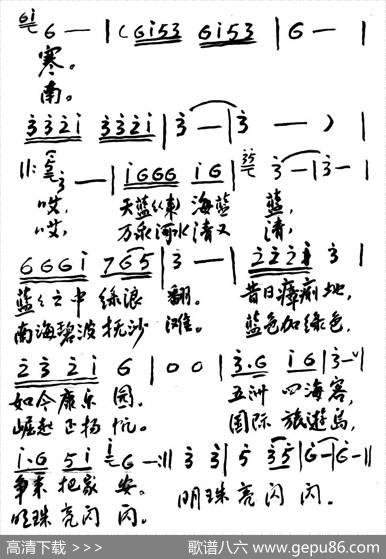 6i 6 — | ( 6i53 6i53 | 6 — |
寒。
南。
3321 3321 | 3 — | 3 — ) |
||: 5 3 — | i666 i6 | 35 3 — | 3 — |
哎, 天蓝 海蓝 蓝,
哎, 万泉河水清又 清,
666i 765 | 3 — | 2221 3 |
蓝之中绿浪 翻。 昔日瘴痢地,
南海碧波抚沙 滩。 蓝色加绿色,
232i 6 | 0 0 | 3.6 i6 | 3 — |
如今康乐 园。 五洲 四海客,
崛起正扬 帆。 国际 旅遊岛,
i.6 5i i 6 — :|| 3 3 | 5 35 | 6 — | 6 — ||
争来把家 安。 明珠亮闪 闪。
明珠亮闪 闪。
高清下载 >>> 歌谱八六 www.gepu86.com